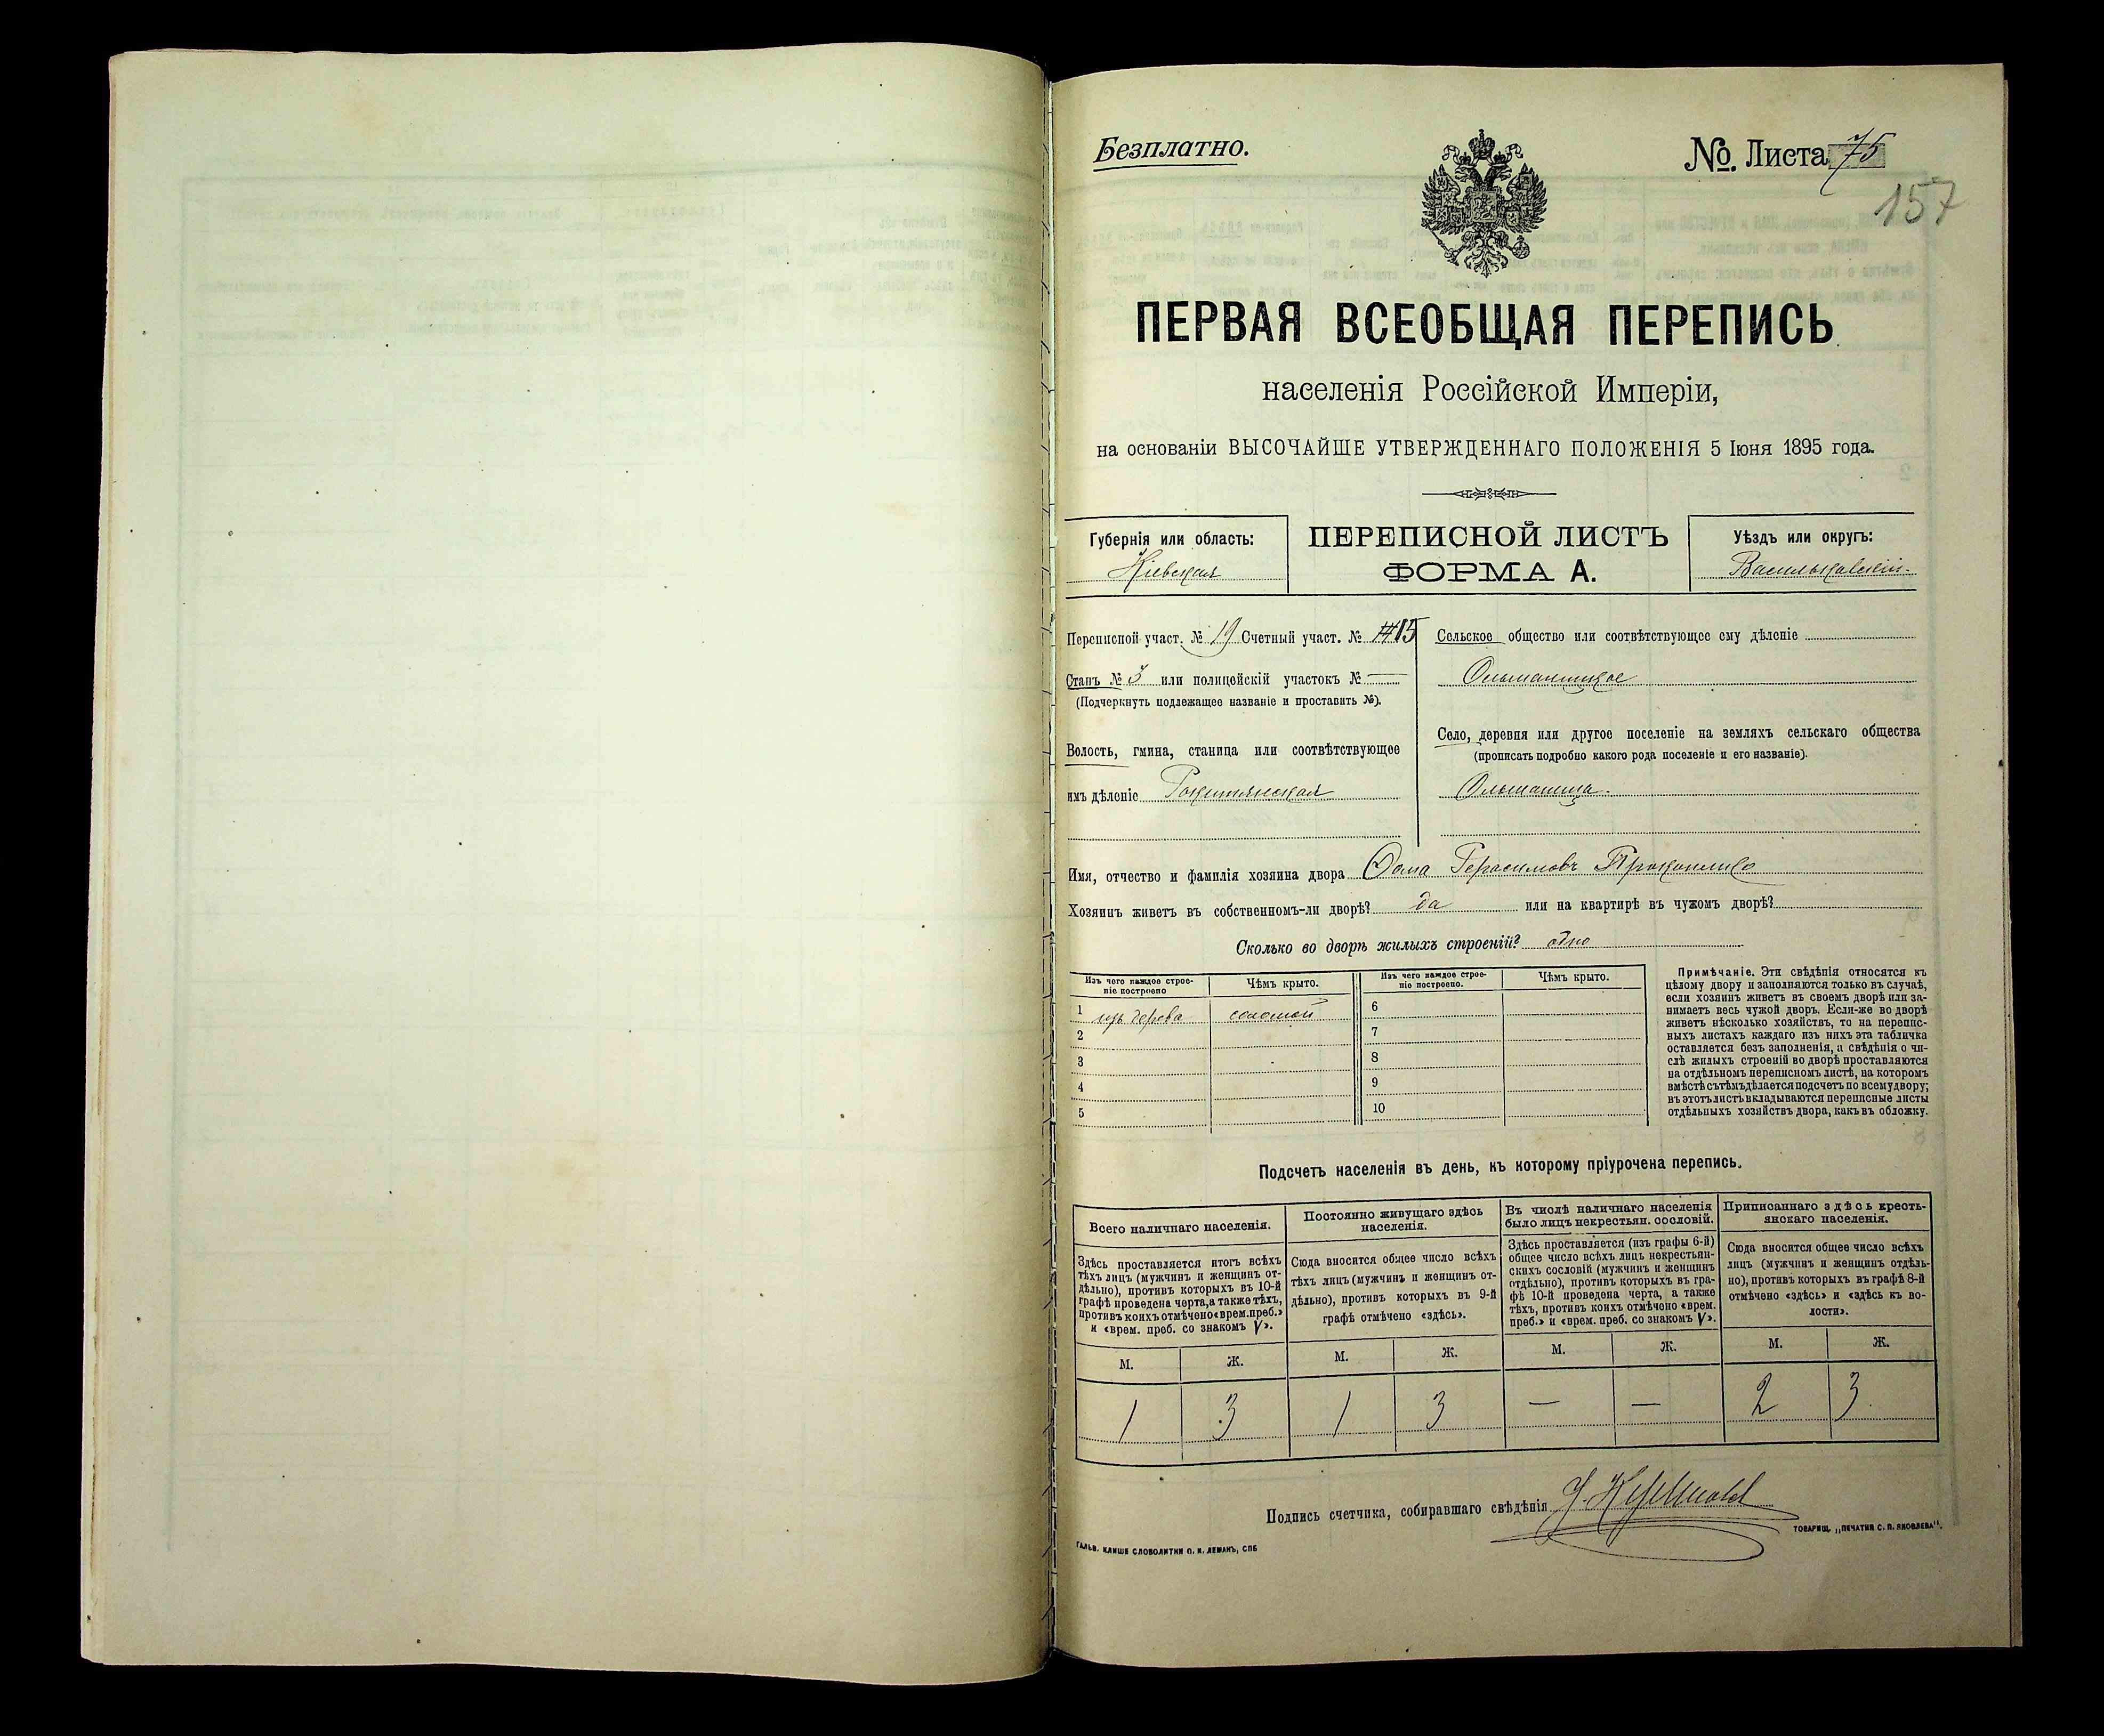 Безплатно.
№. Листа 75
157
ПЕРВАЯ ВСЕОБЩАЯ ПЕРЕПИСЬ
населенія Россійской Имперіи,
на основаніи ВЫСОЧАЙШЕ УТВЕРЖДЕННАГО ПОЛОЖЕНІЯ 5 Іюня 1895 года.
Губернія или область:
Кіевская
ПЕРЕПИСНОЙ ЛИСТЪ
ФОРМА А.
Уѣздъ или округъ:
Васильковскій.
Переписной участ. № 19 Счетный участ. № 15
Станъ № 3 или полицейскій участокъ № —
(Подчеркнуть подлежащее названіе и проставить №).
Волость, гмина, станица или соотвѣтствующее
имъ дѣленіе Рокитянская
Сельское общество или соотвѣтствующее ему дѣленіе
Ольшаницкое
Село, деревня или другое поселеніе на земляхъ сельскаго общества
(прописать подробно какого рода поселеніе и его названіе).
Ольшаница.
Имя, отчество и фамилія хозяина двора Ѳома Герасимовъ
Хозяинъ живетъ въ собственномъ-ли дворѣ? да или на квартирѣ въ чужомъ дворѣ?
Сколько во дворѣ жилыхъ строеній? одно
Изъ чего каждое строе-
ніе построено
Чѣмъ крыто.
Изъ чего каждое строе-
ніе построено.
Чѣмъ крыто.
1 изъ дерева соломой
2
3
4
5
6
7
8
9
10
Примѣчаніе. Эти свѣдѣнія относятся къ
цѣлому двору и заполняются только въ случаѣ,
если хозяинъ живетъ въ своемъ дворѣ или за-
нимаетъ весь чужой дворъ. Если-же во дворѣ
живетъ нѣсколько хозяйствъ, то на перепис-
ныхъ листахъ каждаго изъ нихъ эта табличка
оставляется безъ заполненія, а свѣдѣнія о чи-
слѣ жилыхъ строеній во дворѣ проставляются
на отдѣльномъ переписномъ листѣ, на которомъ
вмѣстѣ съ тѣмъ дѣлается подсчетъ по всему двору;
въ этотъ листъ вкладываются переписные листы
отдѣльныхъ хозяйствъ двора, какъ въ обложку.
Подсчетъ населенія въ день, къ которому пріурочена перепись.
Всего наличнаго населенія.
Здѣсь проставляется итогъ всѣхъ
тѣхъ лицъ (мужчинъ и женщинъ от-
дѣльно), противъ которыхъ въ 10-й
графѣ проведена черта, а также тѣхъ,
противъ коихъ отмѣчено «врем. преб.»
и «врем. преб. со знакомъ V».
Постоянно живущаго здѣсь
населенія.
Сюда вносится общее число всѣхъ
тѣхъ лицъ (мужчинъ и женщинъ от-
дѣльно), противъ которыхъ въ 9-й
графѣ отмѣчено «здѣсь».
Въ числѣ наличнаго населенія
было лицъ некрестьян. сословій.
Здѣсь проставляется (изъ графы 6-й)
общее число всѣхъ лицъ некрестьян-
скихъ сословій (мужчинъ и женщинъ
отдѣльно), противъ которыхъ въ гра-
фѣ 10-й проведена черта, а также
тѣхъ, противъ коихъ отмѣчено «врем.
преб.» и «врем. преб. со знакомъ V».
Приписаннаго здѣсь кресть-
янскаго населенія.
Сюда вносится общее число всѣхъ
лицъ (мужчинъ и женщинъ отдѣль-
но), противъ которыхъ въ графѣ 8-й
отмѣчено «здѣсь» и «здѣсь къ во-
лости».
М. Ж. М. Ж. М. Ж. М. Ж.
1 3 1 3 — — 2 3
Подпись счетчика, собиравшаго свѣдѣнія
ТОВАРИЩ. „ПЕЧАТНЯ С. П. ЯКОВЛЕВА".
ГАЛЬВ. КЛИШЕ СЛОВОЛИТНИ О. И. ЛЕМАНЪ, СПБ